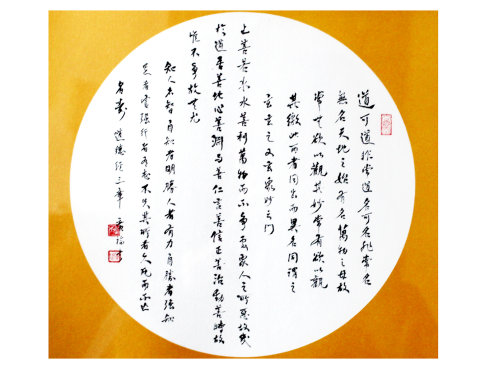 道可道非常道名可名非常名
無名天地之始有名萬物之母故
常无欲以觀其妙常有欲以觀
其徼此兩者同出而異名同謂之
玄玄之又玄衆妙之門
上善若水水善利萬物而不爭處衆人之所惡故幾
於道居善地心善淵與善仁言善信正善治動善時故
惟不爭故无尤
知人者智自知者明勝人者有力自勝者強知
足者富強行者有志不失其所者久死而不亡
者壽 道德經三章